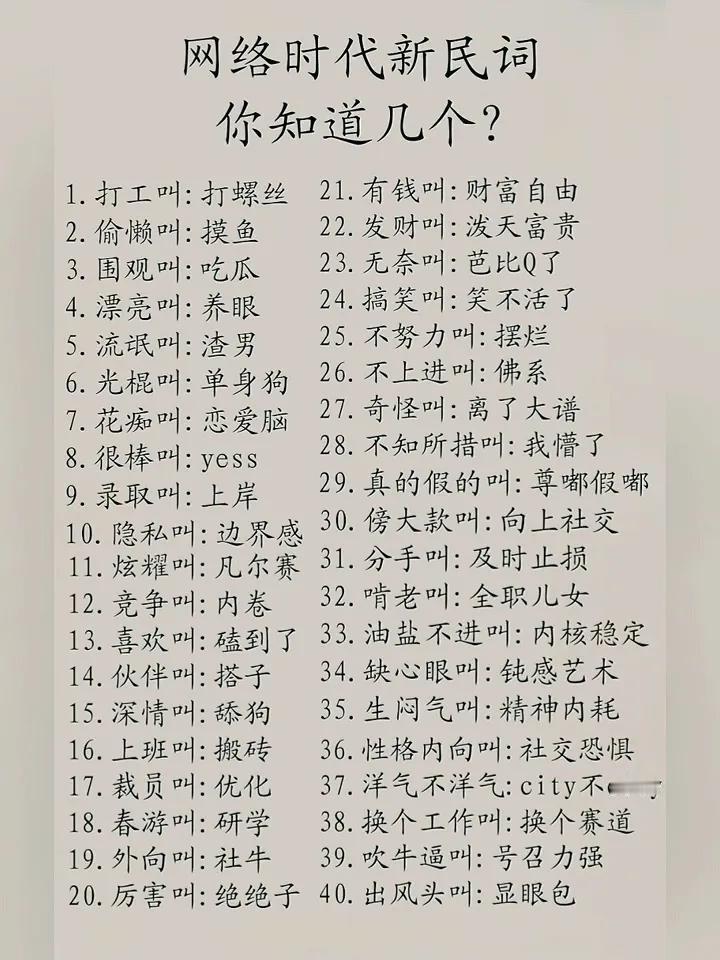 网络时代新民词
你知道几个?
1.打工叫:打螺丝
2.偷懒叫:摸鱼
3.围观叫:吃瓜
4.漂亮叫:养眼
5.流氓叫:渣男
6.光棍叫:单身狗
7.花痴叫:恋爱脑
8.很棒叫:yess
9.录取叫:上岸
10.隐私叫:边界感
11.炫耀叫:凡尔赛
12.竞争叫:内卷
13.喜欢叫:磕到了
14.伙伴叫:搭子
15.深情叫:舔狗
16.上班叫:搬砖
17.裁员叫:优化
18.春游叫:研学
19.外向叫:社牛
20.厉害叫:绝绝子
21.有钱叫:财富自由
22.发财叫:泼天富贵
23.无奈叫:芭比Q了
24.搞笑叫:笑不活了
25.不努力叫:摆烂
26.不上进叫:佛系
27.奇怪叫:离了大谱
28.不知所措叫:我懵了
29.真的假的叫:尊嘟假嘟
30.傍大款叫:向上社交
31.分手叫:及时止损
32.啃老叫:全职儿女
33.油盐不进叫:内核稳定
34.缺心眼叫:钝感艺术
35.生闷气叫:精神内耗
36.性格内向叫:社交恐惧
37.洋气不洋气:city不
38.换个工作叫:换个赛道
39.吹牛逼叫:号召力强
40.出风头叫:显眼包